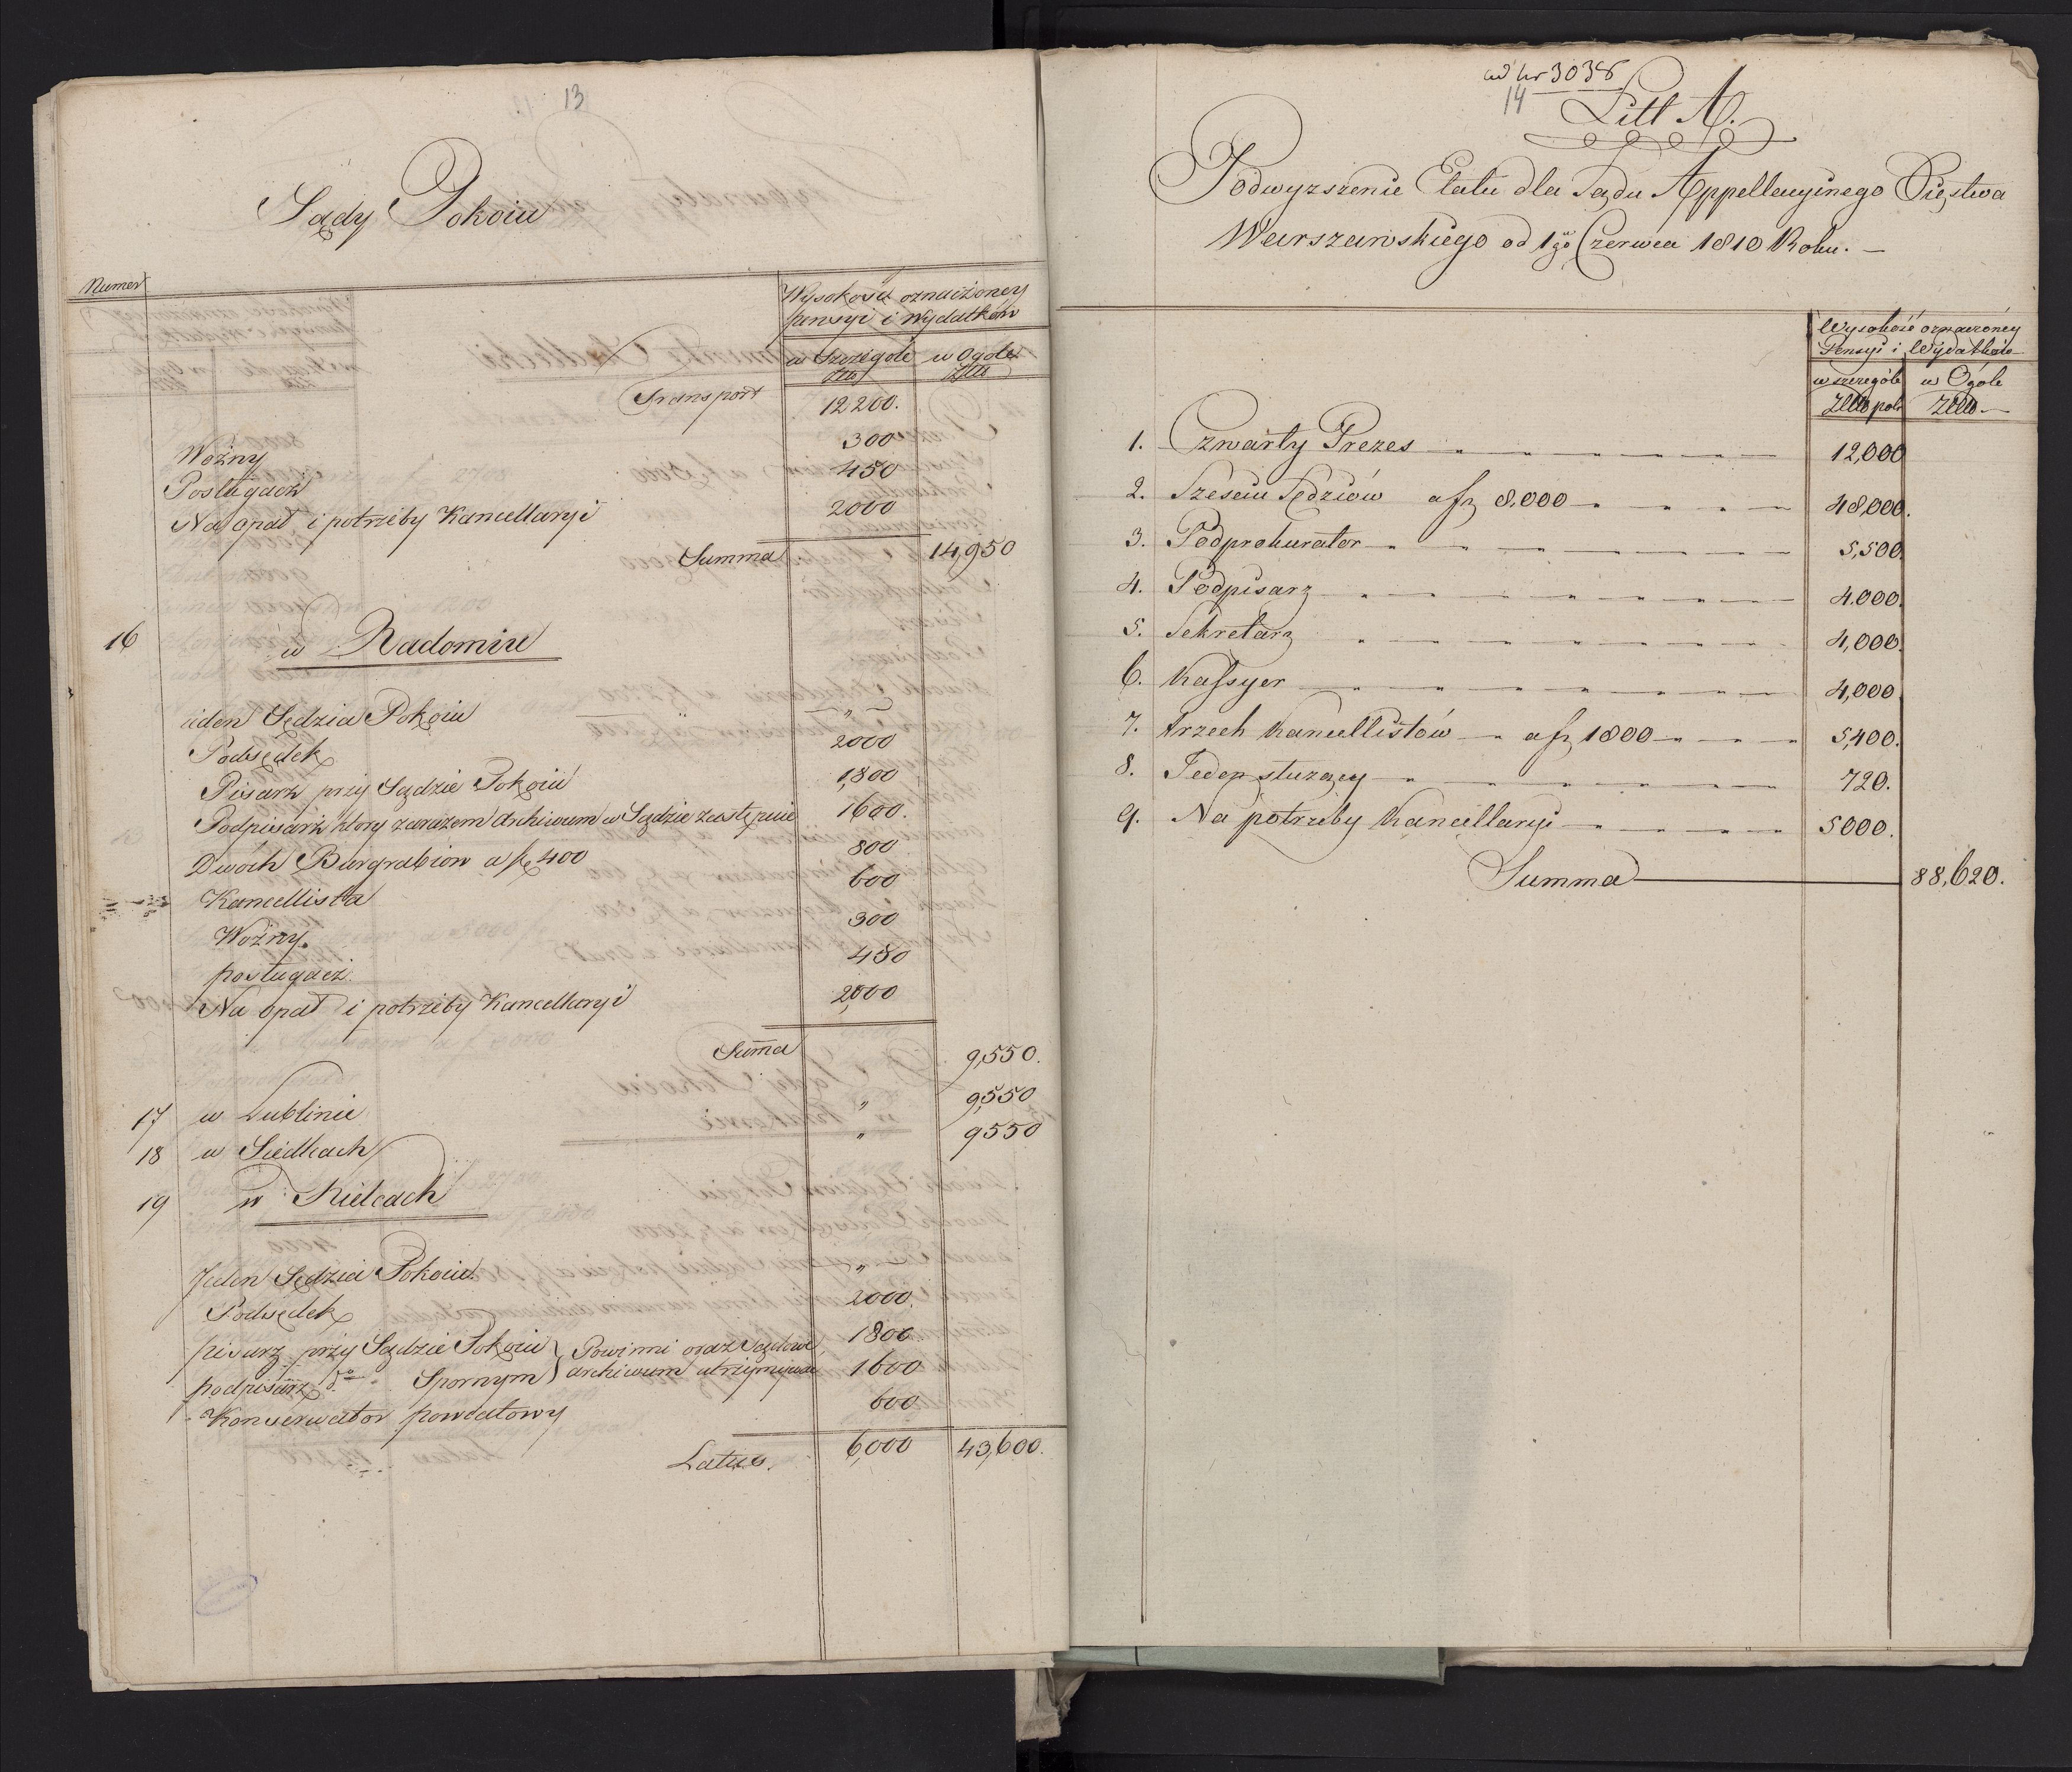 13
Sądy Pokoiu
Numer
Wysokość oznaczoney
pensyi i Wydatków
w Szczególe w Ogóle
Złto Złto
Transport 12200.
Woźny 300
Posługacz 450
Na opał i potrzeby Kancellaryi 2000
Summa 14,950
16 w Radomiu
ieden Sędzia Pokoiu — „ —
Podsędek 2000
Pisarz przy Sądzie Pokoiu 1,800
Podpisarz który zarazem Archiwum w Sądzie zastępuie 1600.
Dwóch Burgrabiow a fl 400 800
Kancellista 600
Woźny. 300
posługacz. 450
Na opał i potrzeby Kancellaryi 2,000
Summa 9,550.
17 w Lublinie „ 9,550
18 w Siedlcach „ 9550
19 w Kielcach
Jeden Sędzia Pokoiu. — „ —
Podsędek 2000.
pisarz przy Sądzie Pokoiu } Powinni oraz Sądowe 1800.
podpisarz do Spornym } archiwum utrzymywać 1600
Konserwator powiatowy 600
Latus. 6,000 43,600.
ad nr 3038
14
Litt A.
Podwyzszenie Etatu dla Sądu Appellacyinego Xięstwa
Warszawskiego od 1go Czerwca 1810 Roku. —
Wysokość oznaczoney
Pensyi i Wydatków
w szczególe w Ogóle
Złło pols Złło —
1. Czwarty Prezes 12,000
2. Sześciu Sędziów a fl 8,000 48,000.
3. Podprokurator 5,500.
4. Podpisarz 4.000.
5. Sekretarz 4,000.
6. Kassyer 4,000
7. trzech Kancellistów a fl 1800 5,400.
8. Jeden służący 720.
9. Na potrzeby Kancellaryi 5000.
Summa 88,620.